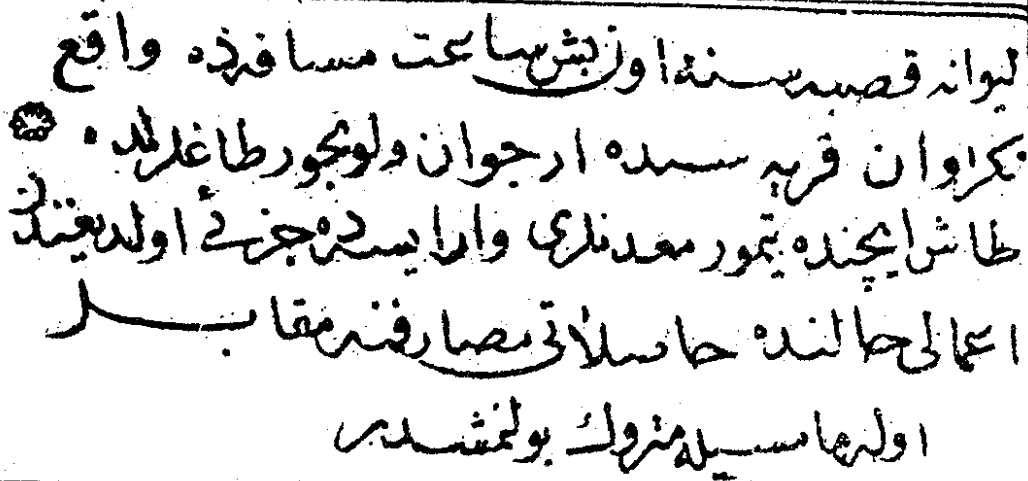 ليوانه قصبه سنه اون بش ساعت مسافه ده واقع
نكزاوان قريه سنده ارجوان ولوبجور طاغلرنده
طاش ايچنده تيمور معدنلرى وار ايسه ده جزئى اولديغندن
اعمالى حالنده حاصلاتى مصارفنه مقابل
اوله مامسيله متروك بولنمشدر